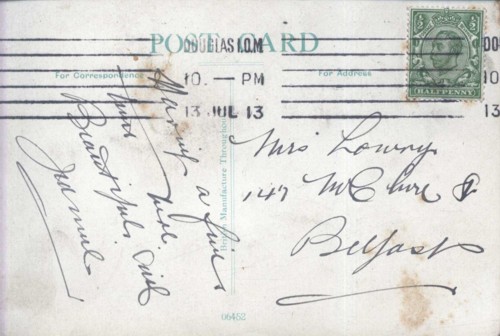 POST CARD
DOUGLAS I.O.M
10. - PM
13 JUL 13
HALFPENNY
For Correspondence
For Address
Having a fine
time
Beautiful
British Manufacture Throughout
Mrs Lowry
147 McClure St
Belfast
06452